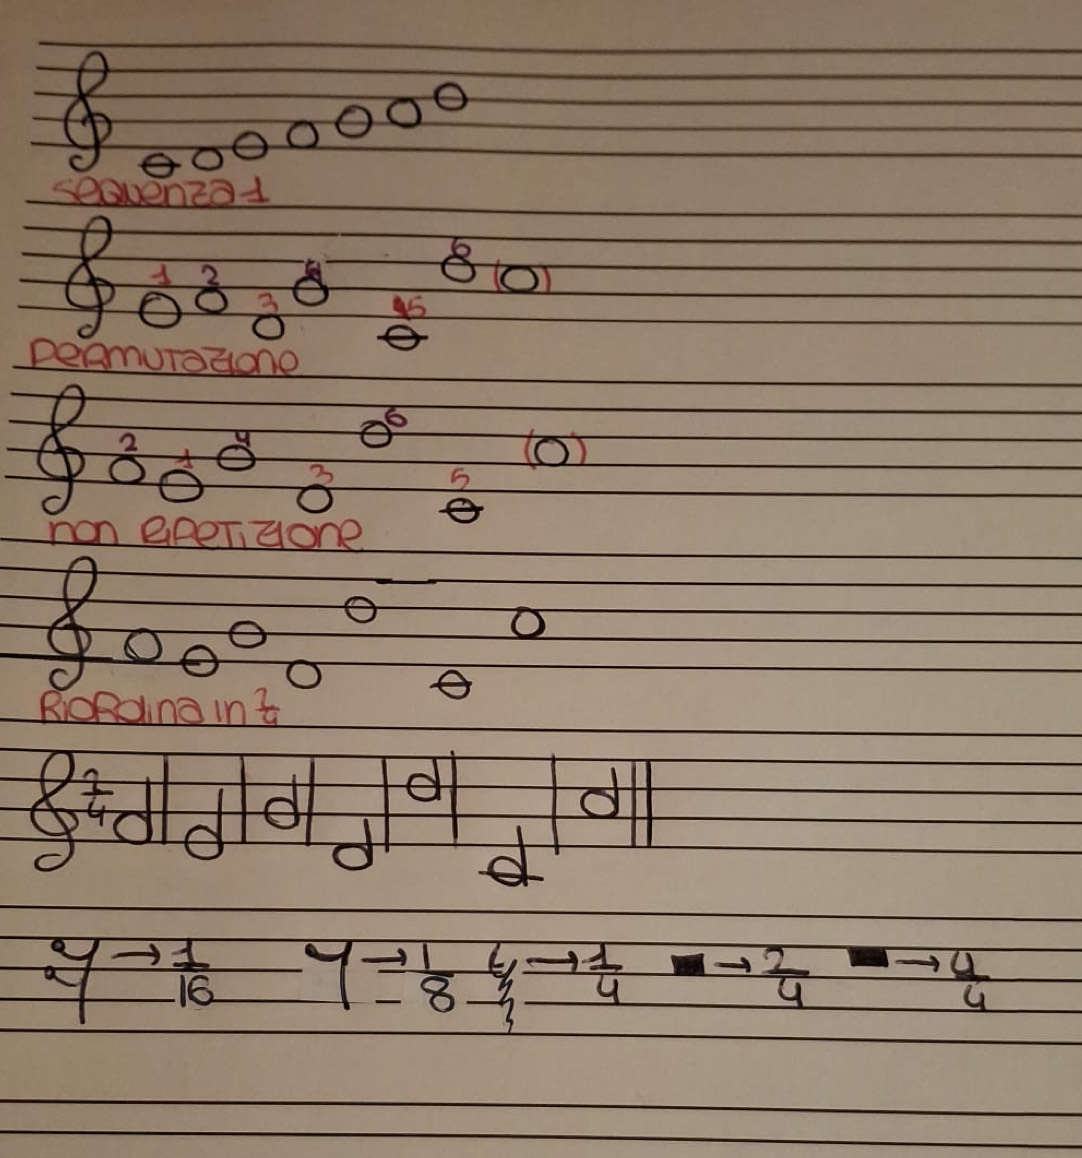 sequenza 1
1 2 3 4 5 6
permutazione
2 1 4 3 6 5
non ripetizione
Riordina in 2/4
2/4
→ 1/16 → 1/8 → 1/4 → 2/4 → 4/4